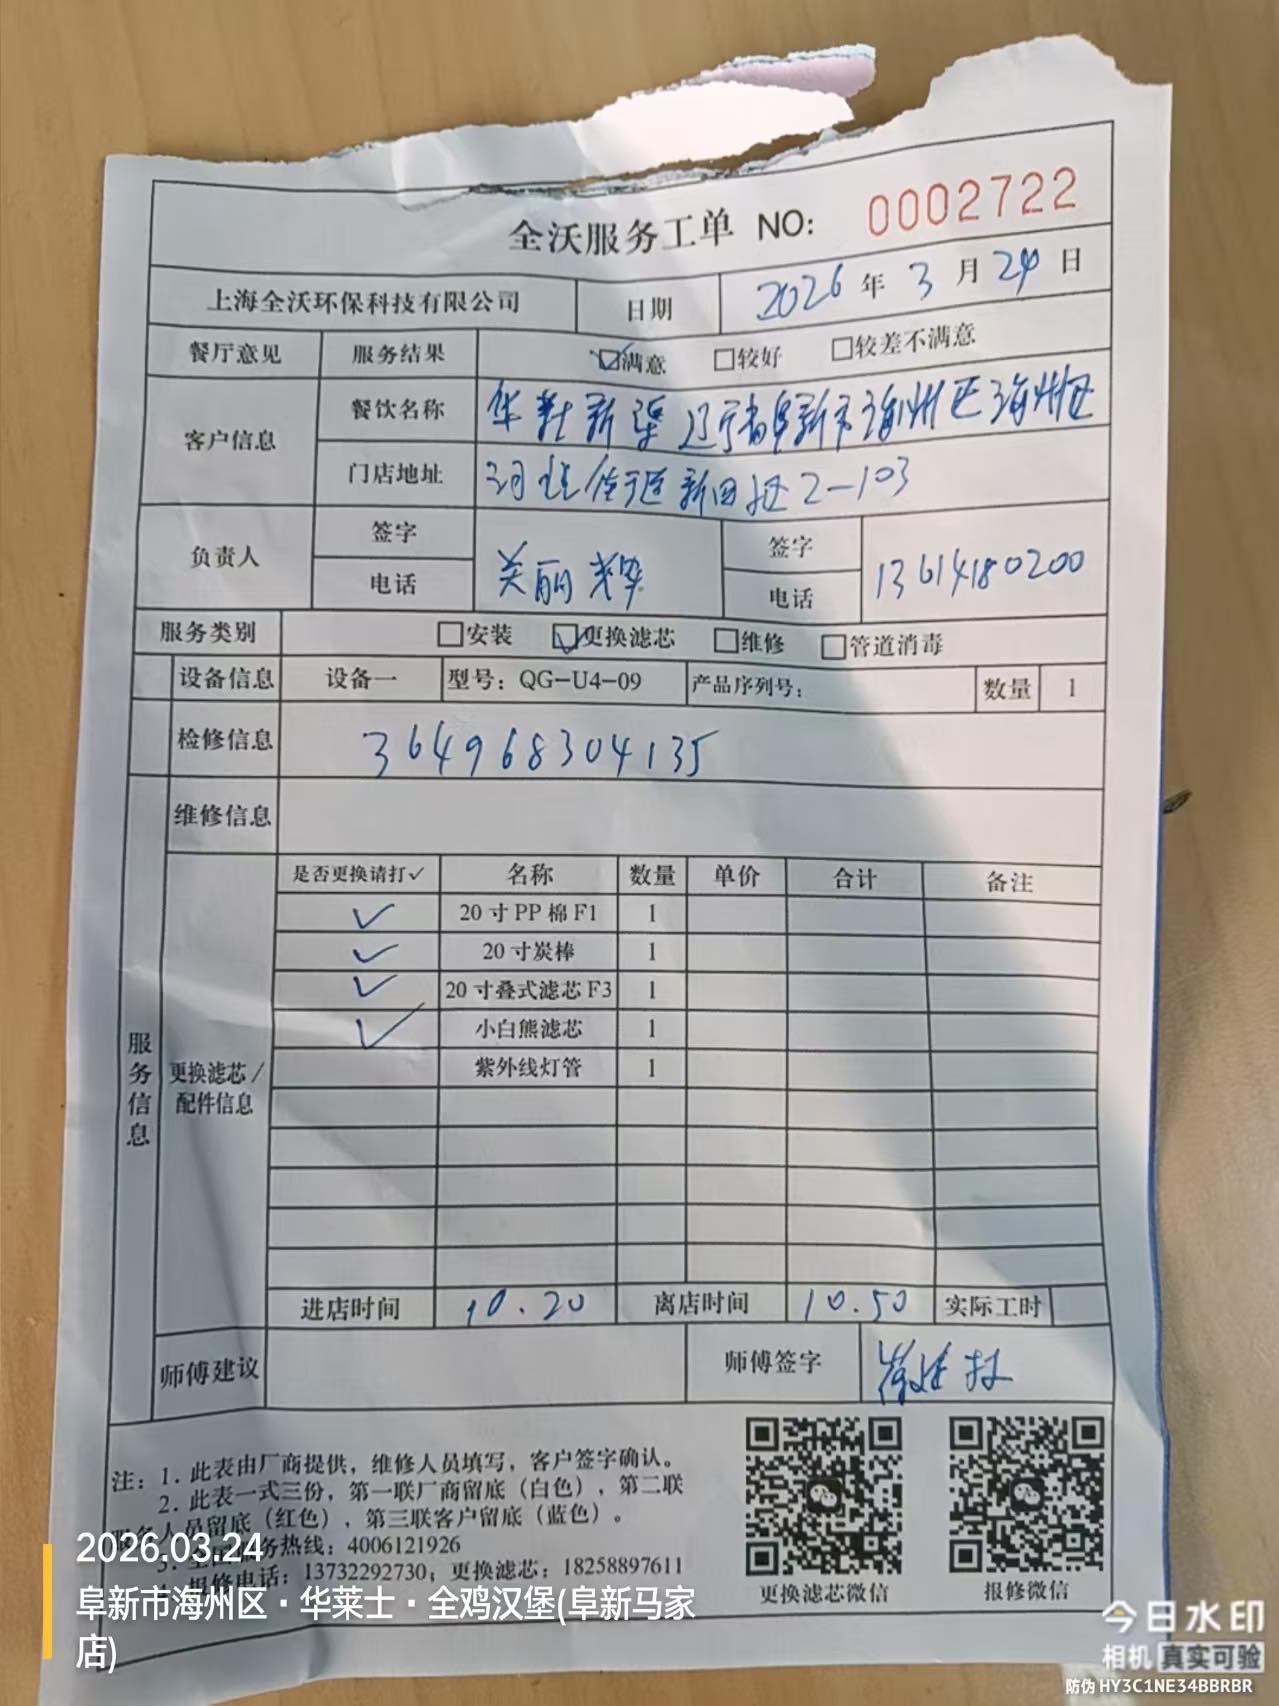 全沃服务工单 NO: 0002722
上海全沃环保科技有限公司 日期 2026 年 3 月 24 日
餐厅意见 服务结果 ☑满意 □较好 □较差不满意
客户信息 餐饮名称 华 新 辽宁省阜新市海州区海州区
门店地址 河 街道新 2-103
负责人 签字 签字
电话 丽 电话 13614180200
服务类别 □安装 ☑更换滤芯 □维修 □管道消毒
设备信息 设备一 型号：QG-U4-09 产品序列号： 数量 1
检修信息 364968304135
维修信息
是否更换请打✓ 名称 数量 单价 合计 备注
✓ 20寸PP棉F1 1
✓ 20寸炭棒 1
✓ 20寸叠式滤芯F3 1
✓ 小白熊滤芯 1
紫外线灯管 1
服务信息
更换滤芯/
配件信息
进店时间 10.20 离店时间 10.50 实际工时
师傅建议 师傅签字
注：1. 此表由厂商提供，维修人员填写，客户签字确认。
2. 此表一式三份，第一联厂商留底（白色），第二联
人员留底（红色），第三联客户留底（蓝色）。
服务热线：4006121926
报修电话：13732292730；更换滤芯：18258897611
更换滤芯微信 报修微信
2026.03.24
阜新市海州区·华莱士·全鸡汉堡(阜新马家
店)
今日水印
相机 真实可验
防伪 HY3C1NE34BBRBR